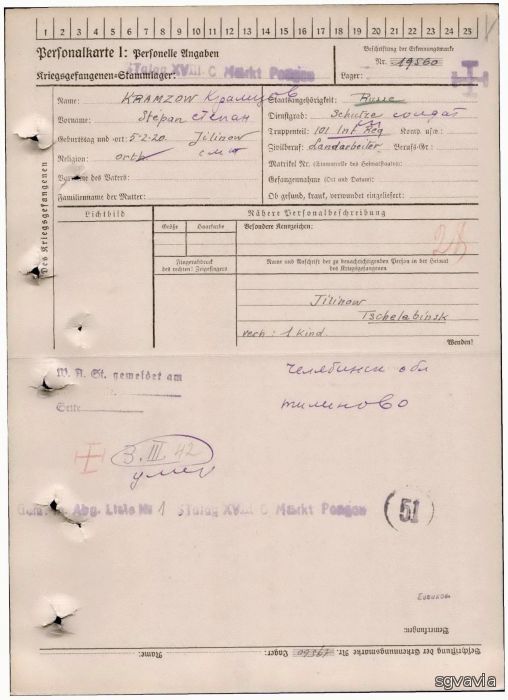 1 2 3 4 5 6 7 8 9 10 11 12 13 14 15 16 17 18 19 20 21 22 23 24 25
Personalkarte I: Personelle Angaben
Kriegsgefangenen-Stammlager: Stalag XVIII C Markt Pongau
Beschriftung der Erkennungsmarke
Nr. 19560
Lager:
Des Kriegsgefangenen
Name: KRAMZOW
Vorname: Stepan Степан
Geburtstag und -ort: 5.2.20. Jilinow
Religion: orth.
Vorname des Vaters:
Familienname der Mutter:
Staatsangehörigkeit: Russe
Dienstgrad: Schütze солдат
Truppenteil: 101 Inf. Reg Komp. usw.:
Zivilberuf: Landarbeiter Berufs-Gr.:
Matrikel Nr. (Stammrolle des Heimatstaates):
Gefangennahme (Ort und Datum):
Ob gesund, krank, verwundet eingeliefert:
Lichtbild
Nähere Personalbeschreibung
Größe Haarfarbe
Besondere Kennzeichen:
28
Fingerabdruck
des rechten! Zeigefingers
Name und Anschrift der zu benachrichtigenden Person in der Heimat
des Kriegsgefangenen
Jilinow
Tschelabinsk
verh: 1 Kind.
Wenden!
W. A. St. gemeldet am
Челябинск обл
Seite
жилиново
3. III. 42
умер
Abg. Liste Nr 1 Stalag XVIII C Markt Pongau
51
Bemerkungen:
Beschriftung der Erkennungsmarke Nr. 19560 Lager: Name:
sgvavia